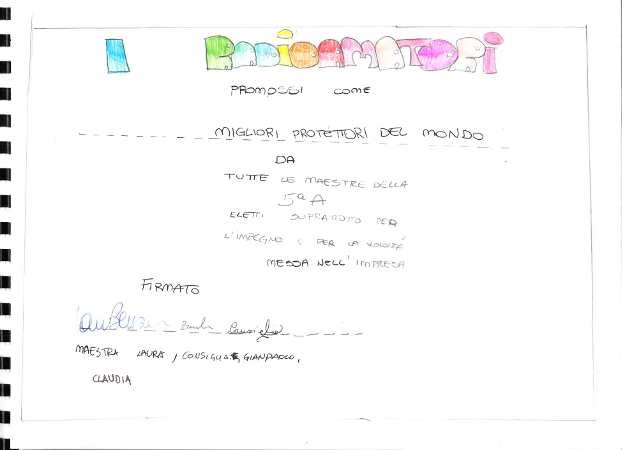 I RADIOAMATORI
PROMOSSI COME
MIGLIORI PROTETTORI DEL MONDO
DA
TUTTE LE MAESTRE DELLA
5ª A
ELETTI SUPRATTUTTO PER
L'IMPEGNO E PER LA VOLONTÁ
MESSA NELL'IMPRESA
FIRMATO
MAESTRA LAURA, CONSIGLIA E, GIANPAOLO,
CLAUDIA